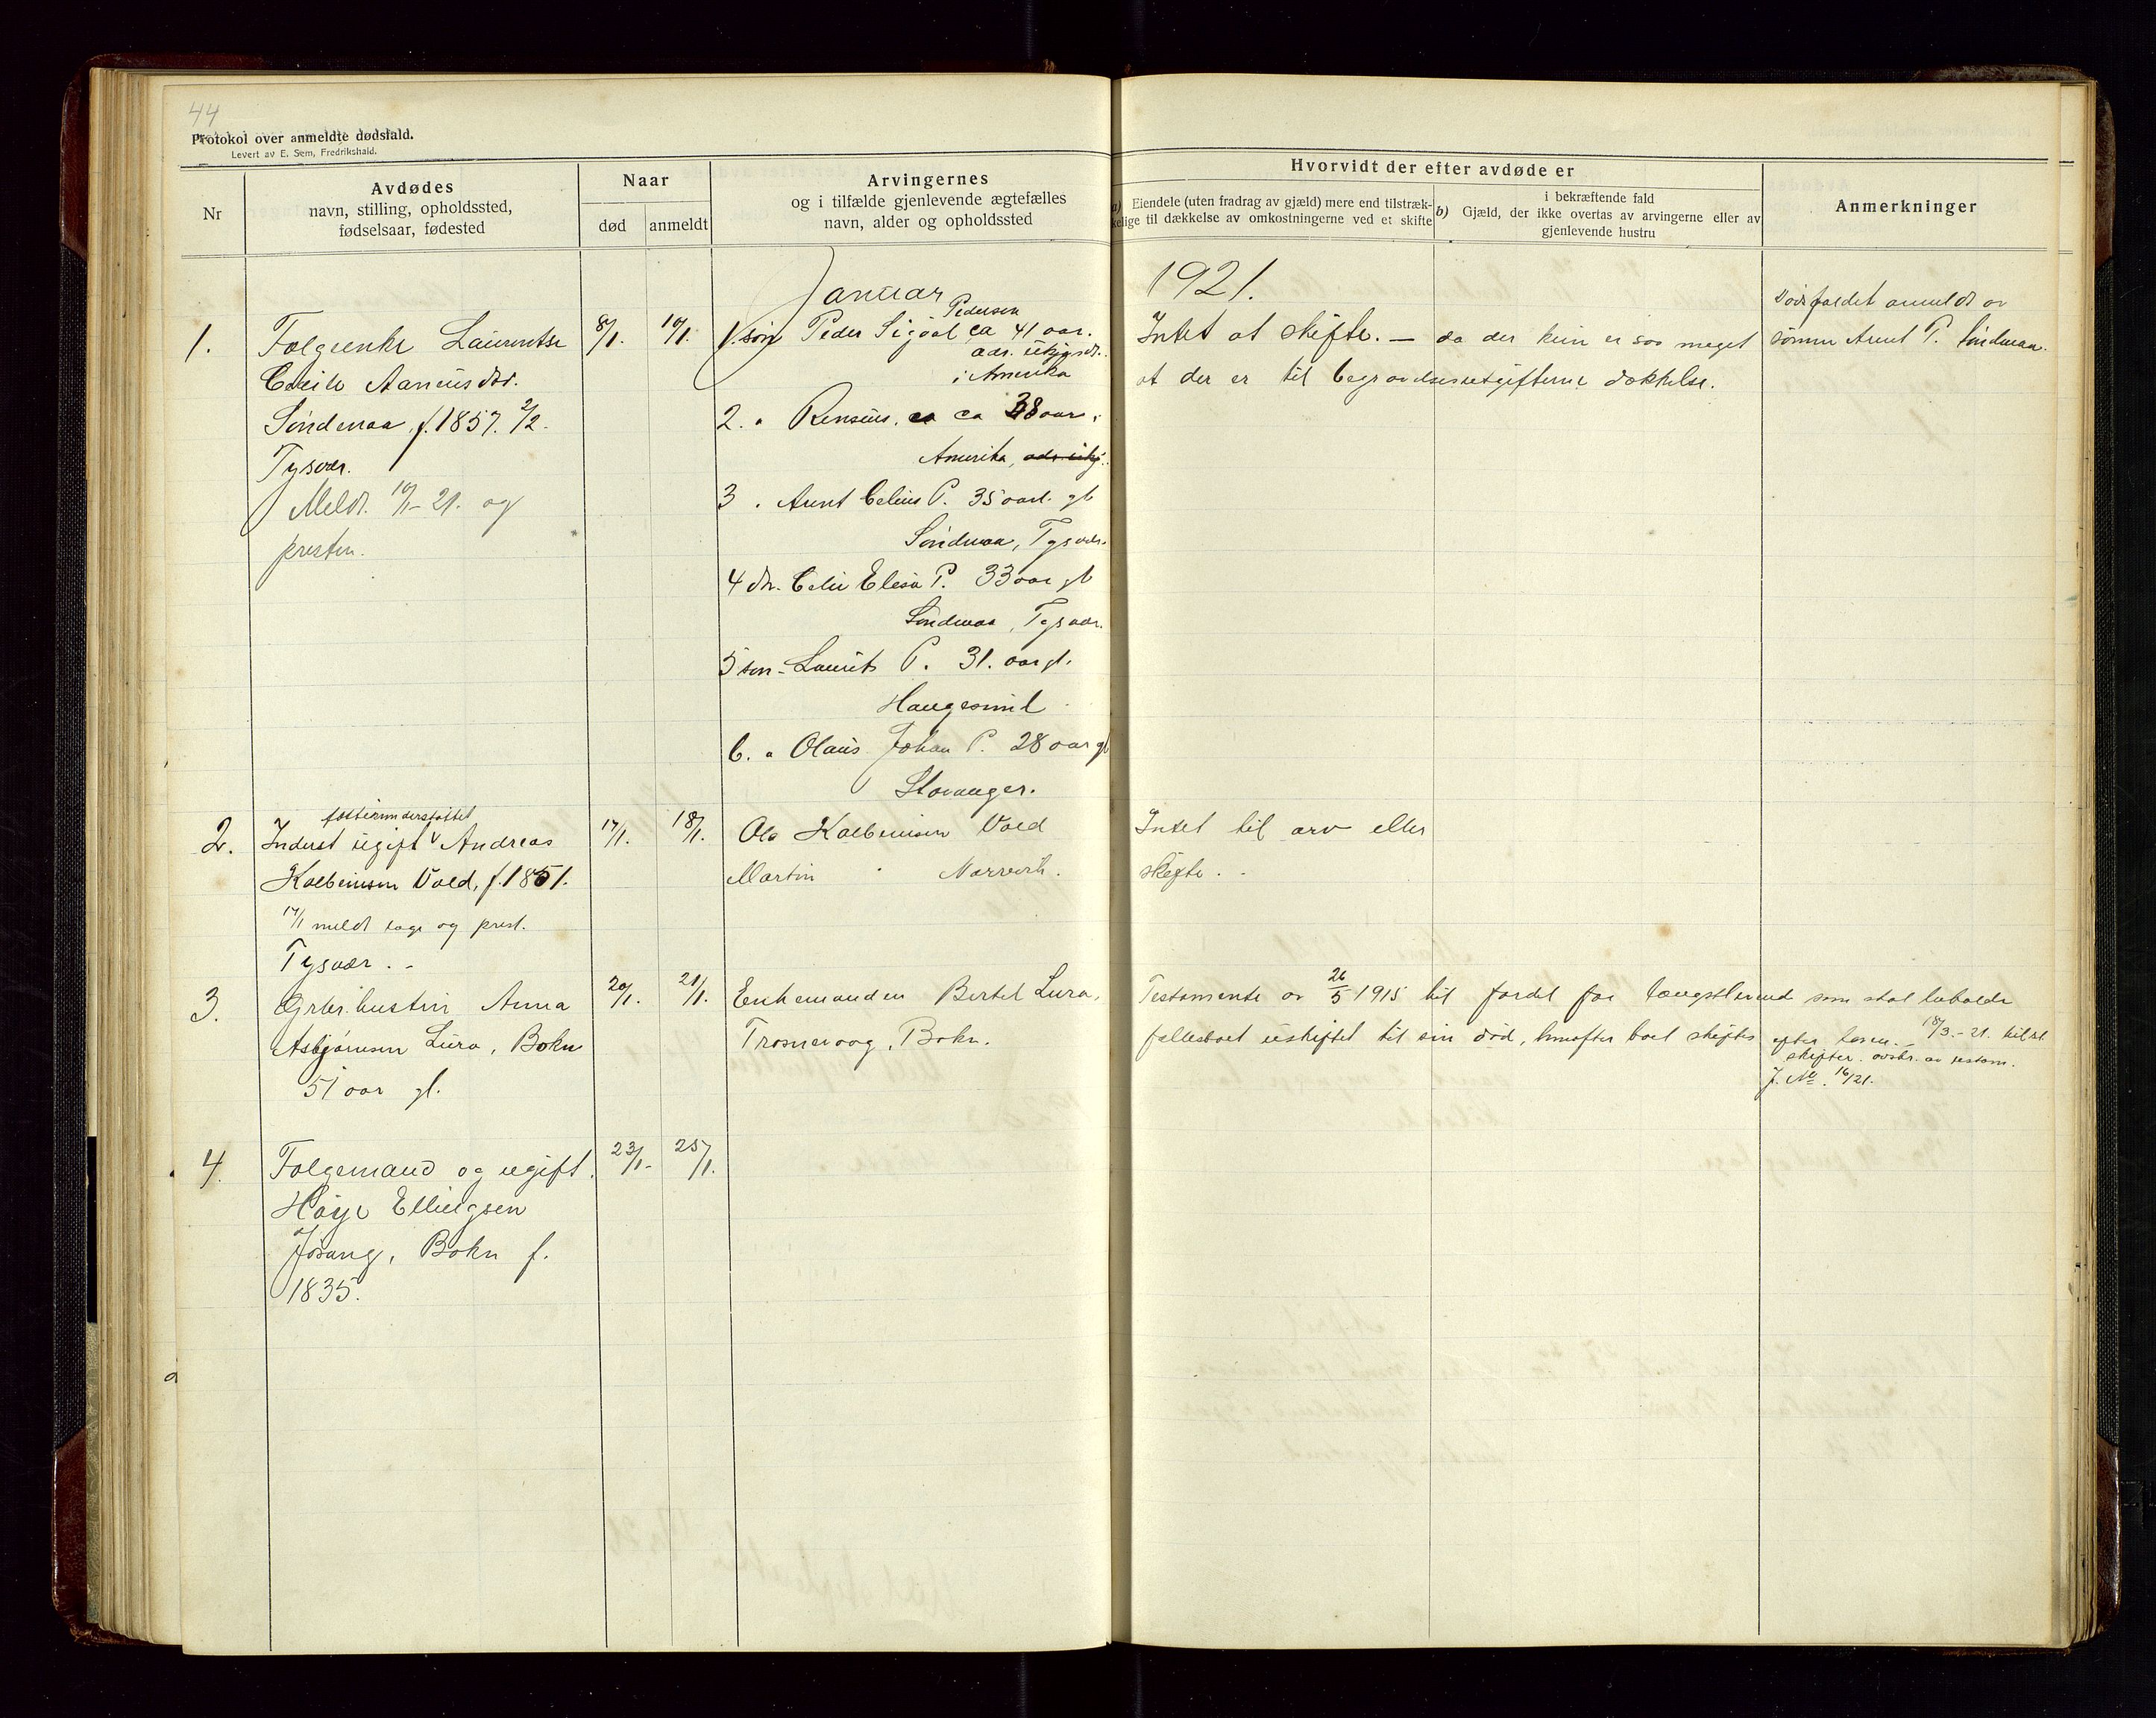 44
Protokol over anmeldte dødsfald.
Levert av E. Sem, Fredrikshald.
Nr
Avdødes
navn, stilling, opholdssted,
fødselsaar, fødested
Naar
død
anmeldt
Arvingernes
og i tilfælde gjenlevende ægtefælles
navn, alder og opholdssted
Hvorvidt der efter avdøde er
a) Eiendele (uten fradrag av gjæld) mere end tilstræk-
kelige til dækkelse av omkostningerne ved et skifte
b) i bekræftende fald
Gjæld, der ikke overtas av arvingerne eller av
gjenlevende hustru
Anmerkninger
Januar
1921.
1.
Folgeenke Laurentse
Cecile Aanensdtr.
Søndenaa, f. 1857. 2/2.
Tysvær.
Meldt 10/1-21. og
presten.
8/1.
10/1.
Pedersen
1. søn Peder Sigval ca 41 aar.
adr. ukjendt.
i Amerika
2. " Rensius, ca 38 aar,
Amerika, adr. ukj.
3 . Arent Celius P. 35 aar gl
Søndenaa, Tysvær.
4 dtr. Celie Elesa P. 33 aar gl
Søndenaa, Tysvær.
5 søn - Laurits P. 31. aar gl.
Haugesund
6. " Olaus Johan P. 28 aar gl
Stavanger.
Intet at skifte. — da der kun er saa meget
at der er til begravelsesutgifterne dækkelse.
Dødsfaldet anmeldt av
sønnen Arent P. Søndenaa.
2.
fattigunderstøttet
Inderst ugift Andreas
Kolbeinsen Vold, f. 1851.
17/1 meldt og prest.
Tysvær. -
17/1.
18/1.
Ola Kolbeinsen Vold
Martin " Narrevik.
Intet til arv eller
skifte. -
3.
Grbr. hustru Anna
Asbjørnsen Lura, Bokn
51 aar gl.
20/1.
21/1.
Enkemanden Bertel Lura,
Trosnavaag, Bokn.
Testamente av 26/5 1915 til fordel for længstlevende som skal beholde
fællesboet uskiftet til sin død, hvorefter boet skiftes efter loven. - 18/3.-21. tilst.
skifter. avskr. av testam.
J. No. 16/21.
4.
Folgemand og ugift.
Høye Ellingsen
Jøsang, Bokn f.
1835.
23/1-
25/1.